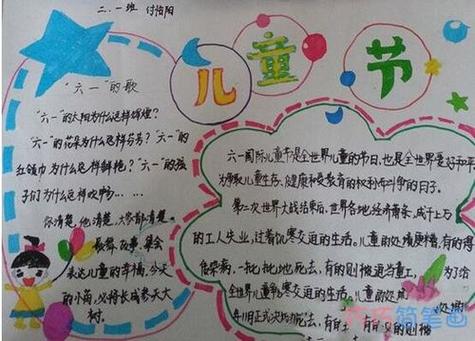 二.一班
儿童节
“六一”的歌
“六一”的太阳为什么这样辉煌?
“六一”的花朵为什么这样芬芳? “六一”的
红领巾为什么这样鲜艳? “六一”的孩
子们为什么这样欢畅……
你清楚,他清楚,大家都清楚。
表达儿童的幸情,今天
的小苗,必将长成参天大
树。
六一国际儿童节是全世界儿童的节日,也是全世界爱好和平
儿童生存、健康和受教育的权利而斗争的日子。
第二次世界大战结束后,世界各地经济萧条,成千上万
的工人失业,过着饥寒交迫的生活。儿童的处境更糟,有的得
病,一批批地死去,有的则被迫当童工,
为了给
全世界儿童
饥寒交迫的生活。儿童的处
月正式决
死去,有
的则被
简笔画